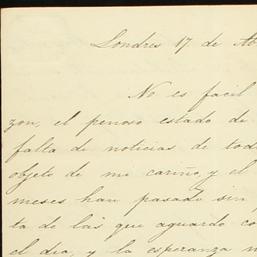 Londres 17 de Ab
No es facil
zon, el penoso estado de
falta de noticias de tod
objeto de mi cariño, y el
meses han pasado sin
ta de las que aguardo co
el dia, y la esperanza m